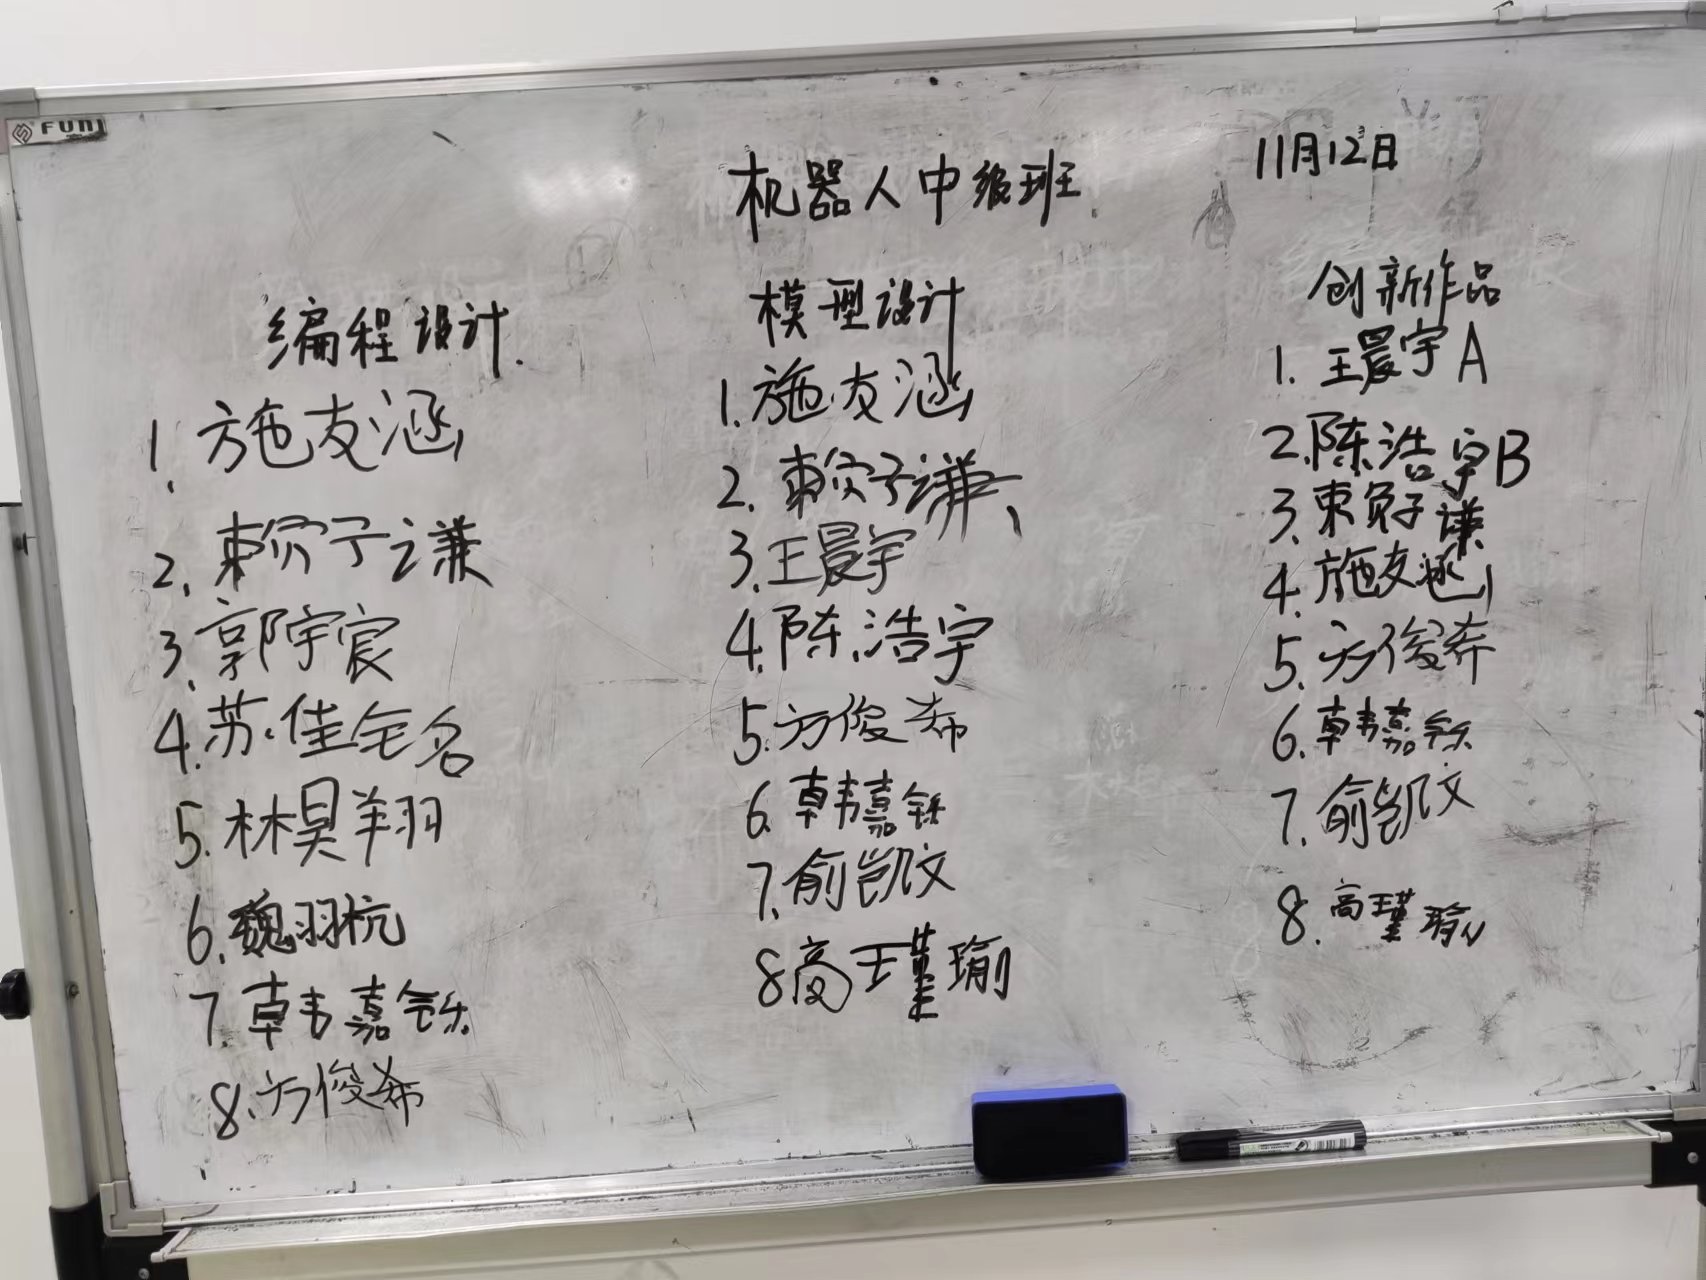 FUNJ
11月12日
机器人中级班
编程设计.
1. 施友涵
2. 赖子谦
3. 郭宇宸
4. 苏佳铭
5. 林昊翔
6. 魏羽杭
7. 卓韦嘉铄
8. 方俊希
模型设计
1. 施友涵
2. 赖子谦
3. 王晨宇
4. 陈浩宇
5. 方俊希
6. 卓韦嘉铄
7. 俞凯文
8 高瑾瑜
创新作品
1. 王晨宇A
2. 陈浩宇B
3. 赖子谦
4. 施友涵
5. 方俊希
6. 卓韦嘉铄
7. 俞凯文
8. 高瑾瑜